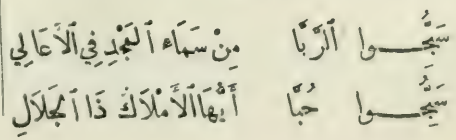 سَبِّحُـــوا ٱلرَّبَّا مِنْ سَمَاءِ ٱلْمَجْدِ فِي ٱلْأَعَالِي
سَبِّحُـــوا حُبًّا أَيُّهَا ٱلْأَمْلَاكُ ذَا ٱلْجَلَالِ